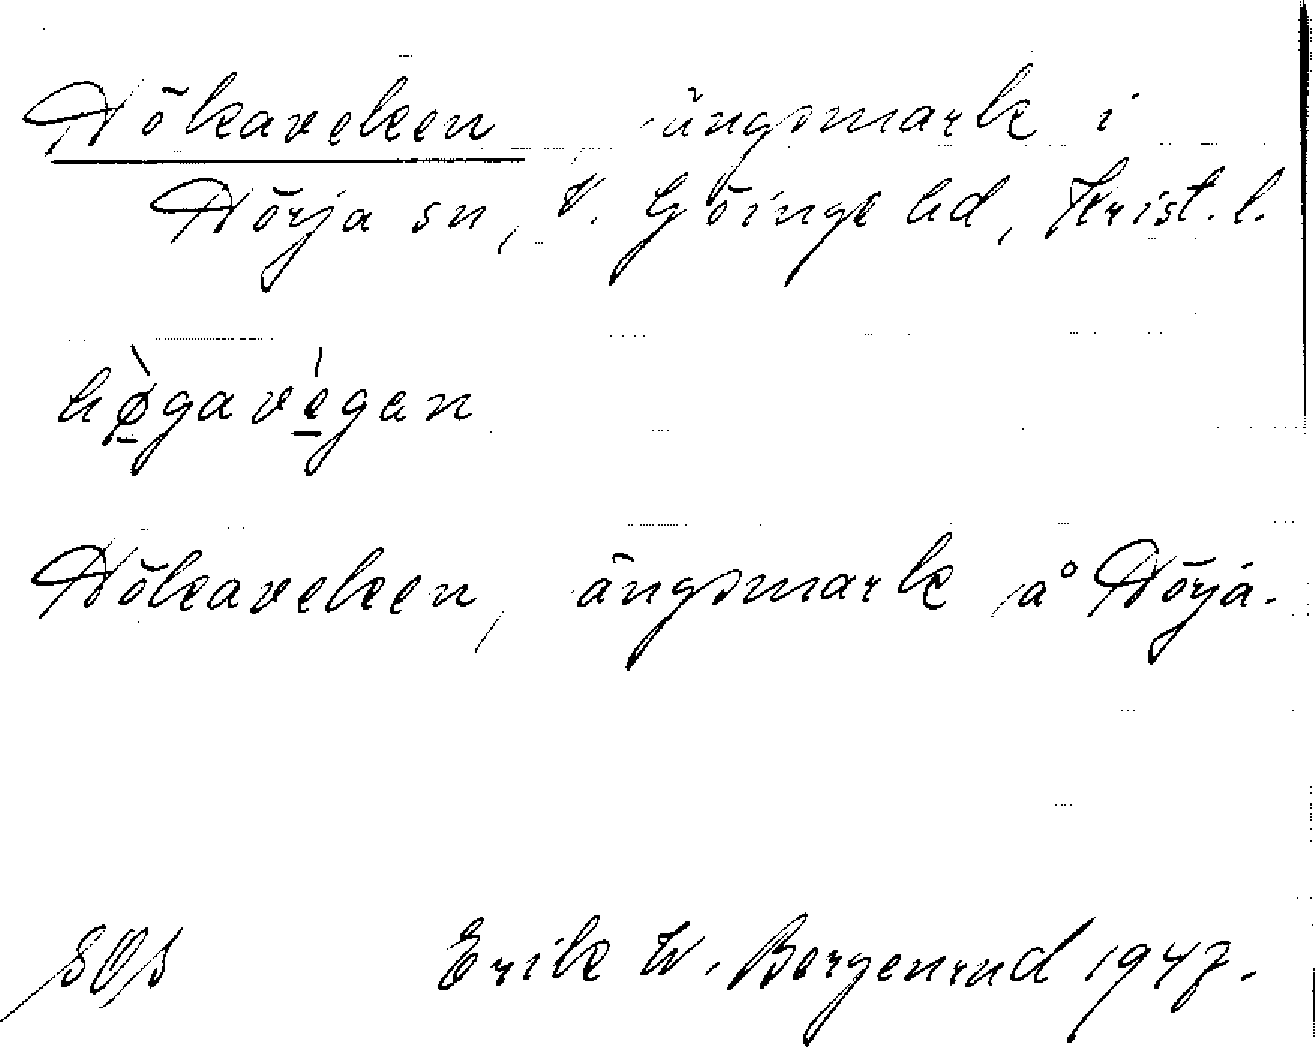 Hökaveken, ängsmark i
Hörja sn, V. Göinge hd, Krist. l.
hø̀gavégan
Hökaveken, ängsmark å Hörja.
SOS Erik W. Bergenrud 1947.